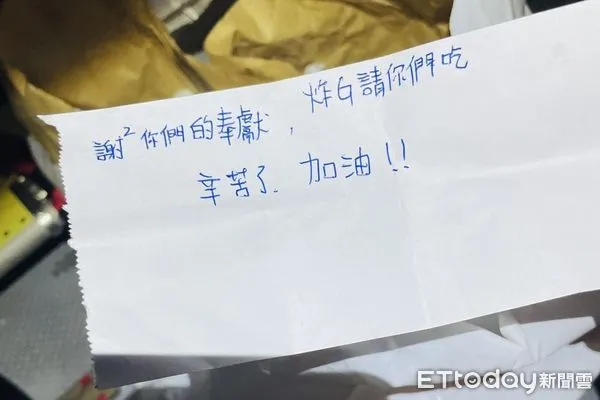 謝²你們的奉獻,炸G請你們吃
辛苦了.加油!!
ETtoday新聞雲